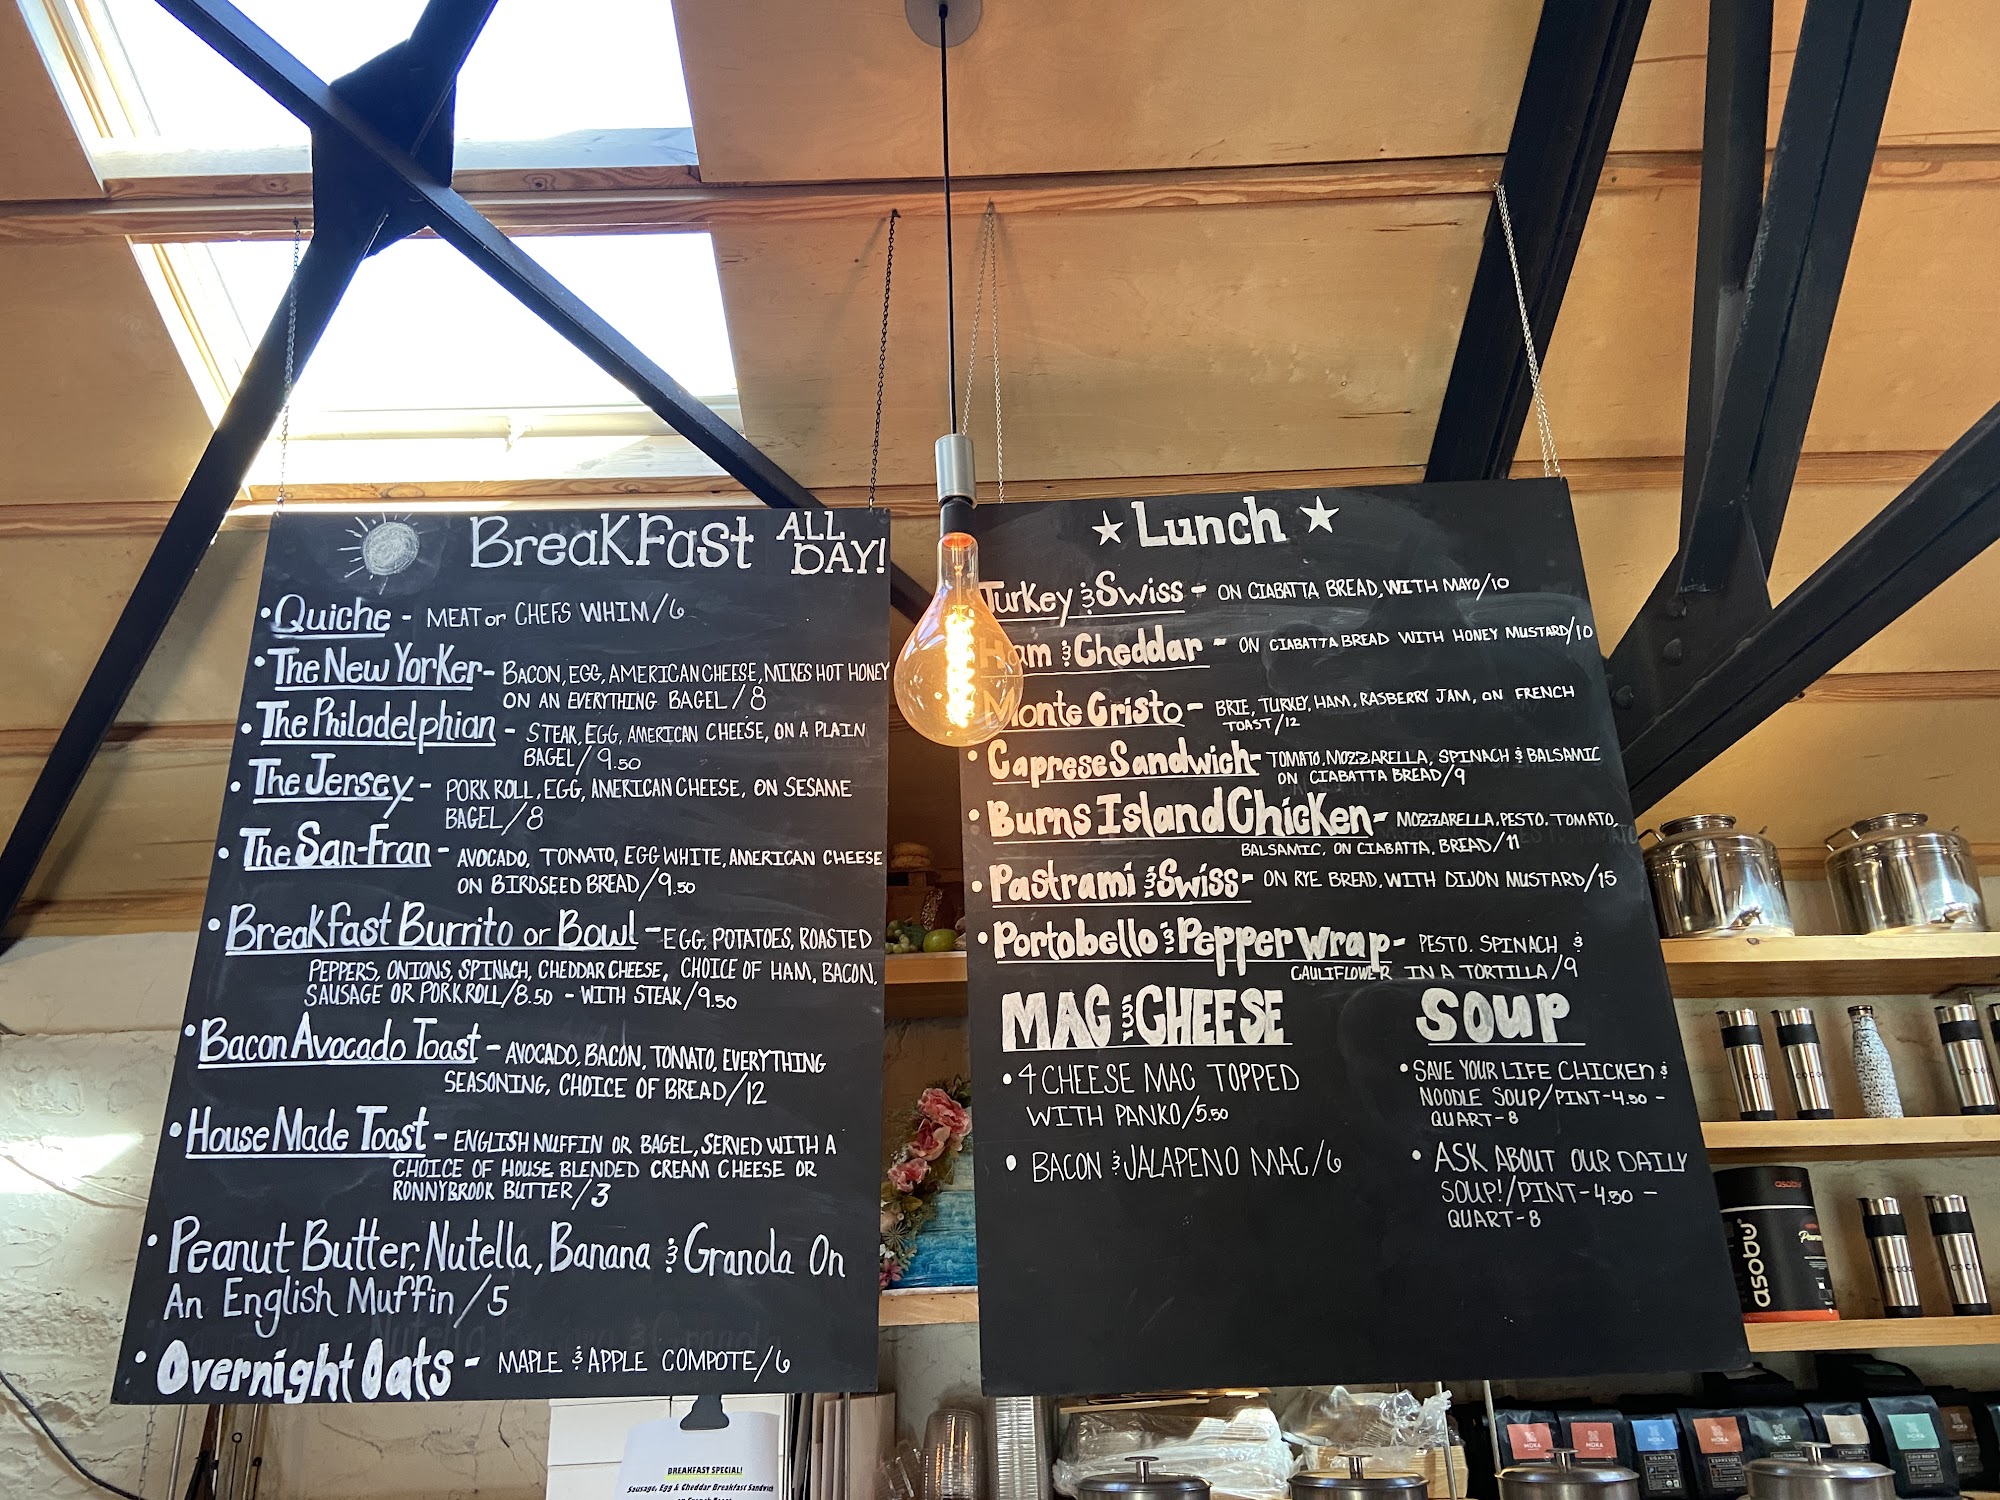 Breakfast ALL DAY!
• Quiche - MEAT or CHEFS WHIM/6
• The New Yorker - BACON, EGG, AMERICAN CHEESE, MIKES HOT HONEY
ON AN EVERYTHING BAGEL/8
• The Philadelphian - STEAK, EGG, AMERICAN CHEESE, ON A PLAIN
BAGEL/9.50
• The Jersey - PORK ROLL, EGG, AMERICAN CHEESE, ON SESAME
BAGEL/8
• The San-Fran - AVOCADO, TOMATO, EGG WHITE, AMERICAN CHEESE
ON BIRDSEED BREAD/9.50
• Breakfast Burrito or Bowl - EGG, POTATOES, ROASTED
PEPPERS, ONIONS, SPINACH, CHEDDAR CHEESE, CHOICE OF HAM, BACON,
SAUSAGE OR PORK ROLL/8.50 - WITH STEAK/9.50
• Bacon Avocado Toast - AVOCADO, BACON, TOMATO, EVERYTHING
SEASONING, CHOICE OF BREAD/12
• House Made Toast - ENGLISH MUFFIN OR BAGEL, SERVED WITH A
CHOICE OF HOUSE BLENDED CREAM CHEESE OR
RONNYBROOK BUTTER/3
• Peanut Butter, Nutella, Banana & Granola On
An English Muffin/5
• Overnight Oats - MAPLE & APPLE COMPOTE/6
★ Lunch ★
Turkey & Swiss - ON CIABATTA BREAD, WITH MAYO/10
Ham & Cheddar - ON CIABATTA BREAD WITH HONEY MUSTARD/10
Monte Cristo - BRIE, TURKEY, HAM, RASBERRY JAM, ON FRENCH
TOAST/12
• Caprese Sandwich - TOMATO, MOZZARELLA, SPINACH & BALSAMIC
ON CIABATTA BREAD/9
• Burns Island Chicken - MOZZARELLA, PESTO, TOMATO,
BALSAMIC, ON CIABATTA, BREAD/11
• Pastrami & Swiss - ON RYE BREAD, WITH DIJON MUSTARD/15
• Portobello & Pepper Wrap - PESTO, SPINACH &
CAULIFLOWER IN A TORTILLA/9
MAC & CHEESE
• 4 CHEESE MAC TOPPED
WITH PANKO/5.50
• BACON & JALAPENO MAC/6
SOUP
• SAVE YOUR LIFE CHICKEN &
NOODLE SOUP/PINT-4.50 -
QUART-8
• ASK ABOUT OUR DAILY
SOUP!/PINT-4.50 -
QUART-8
BREAKFAST SPECIAL!
Sausage, Egg & Cheddar Breakfast Sandwich
asobu
asobu
MOKA
MOKA
MOKA